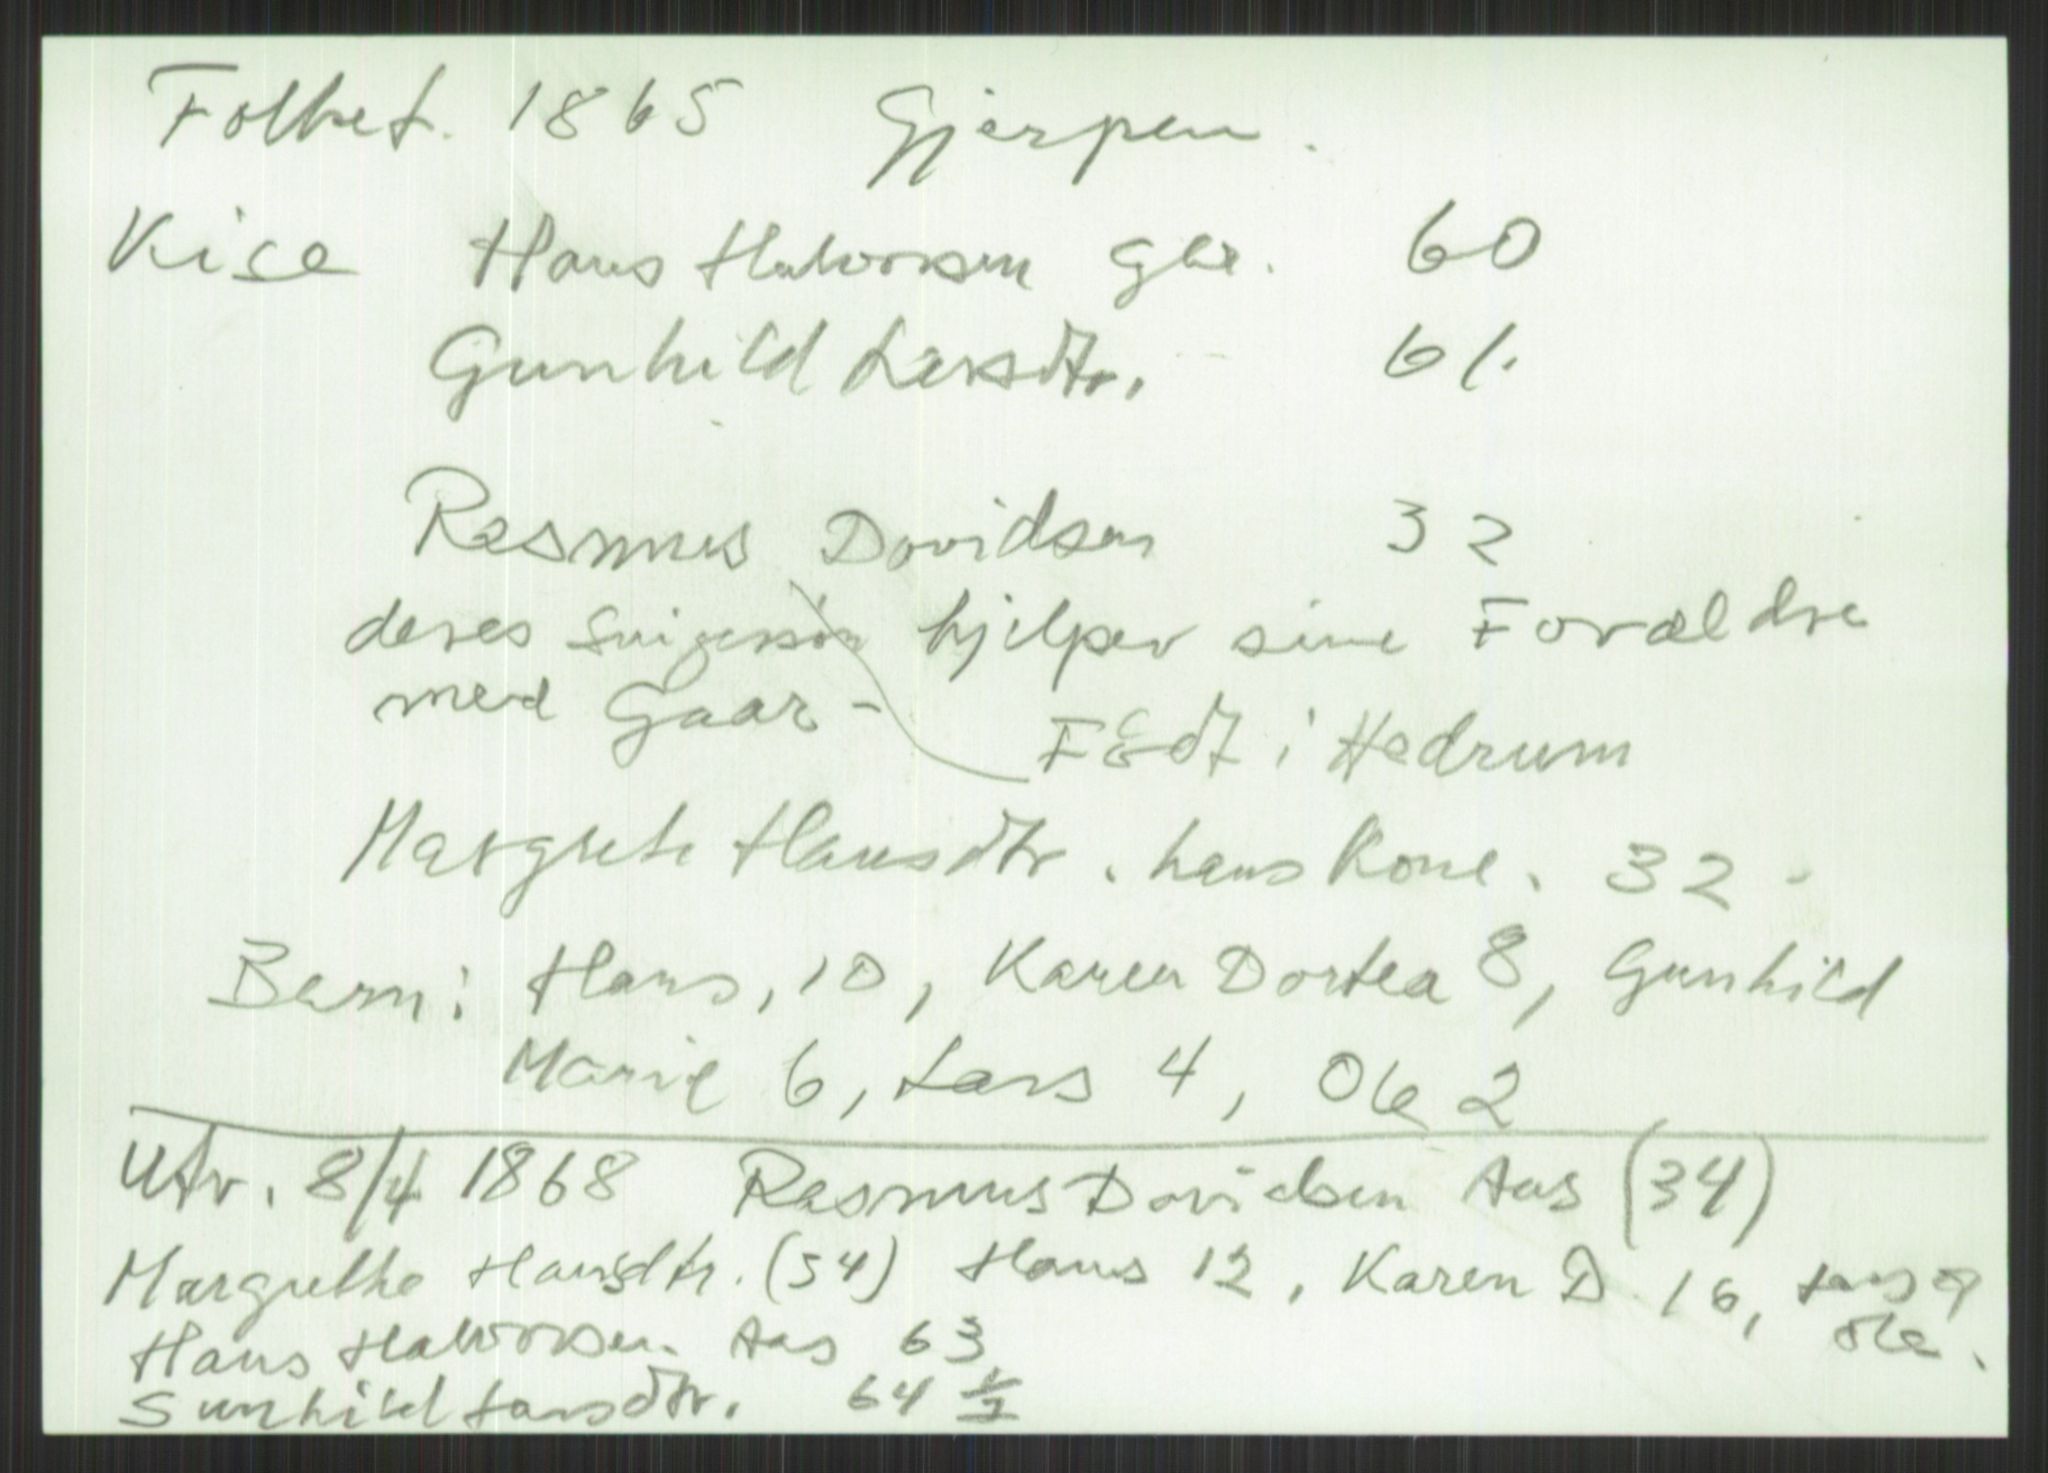 Folket. 1865 Gjerpen.
Kise Hans Halvorsen Gbr. 60
Gunhild Larsdtr. 61.
Rasmus Davidsen 32
deres Svigersøn hjelper sine Forældre
med Gaar-
Født i Hedrum
Margrete Hansdtr. hans Kone. 32
Barn: Hans, 10, Karen Dortea 8, Gunhild
Marie 6, Lars 4, Ole 2
Utv. 8/4 1868 Rasmus Davidsen Aas (34)
Margrethe Hansdtr. (54) Hans 12, Karen D. 16, Lars og
Ole.
Hans Halvorsen Aas 63
Gunhild Larsdtr. 64 1/2